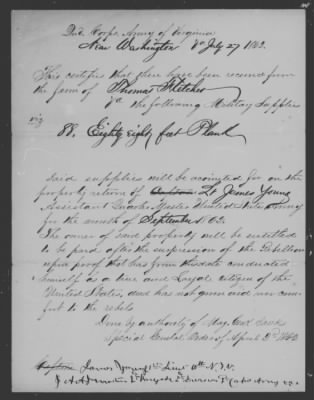 2nd Corps Army of Virginia
Near Washington Va July 27 1862.
This certifies that there have been received from
the farm of Thomas Fletcher
Va the following Military Supplies
viz
88. Eighty eight feet Plank
Said supplies will be accounted for on the
property return of Lt James Young
Assistant Quarter Master United States Army
for the month of September 1862.
The owner of said property will be entitled
to be paid after the suppression of the Rebellion
upon proof that he has from this date conducted
himself as a true and Loyal citizen of the
United States, and has not given aid nor com
fort to the rebels
Done by authority of Maj Genl Banks
Special General Orders of April 2d 1862
James Young 1st Lieut 10th N.J.V.